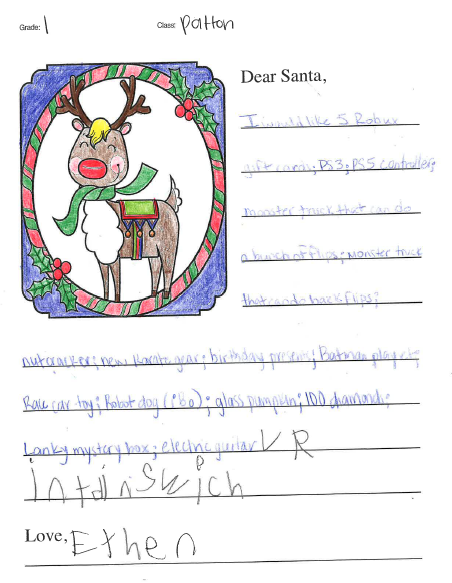 Grade: 1 Class: Patton
Dear Santa,
I would like 5 Robux
gift cards; PS3; PS5 controller;
monster truck that can do
a bunch of flips; Monster truck
that can do back flips;
nutcracker; new Karate gear; birthday presents; Batman play set;
Race car toy; Robot dog (ibo); glass pumpkin; 100 diamonds;
Lanky mystery box; electric guitar VR
intdinswich
Love, Ethen